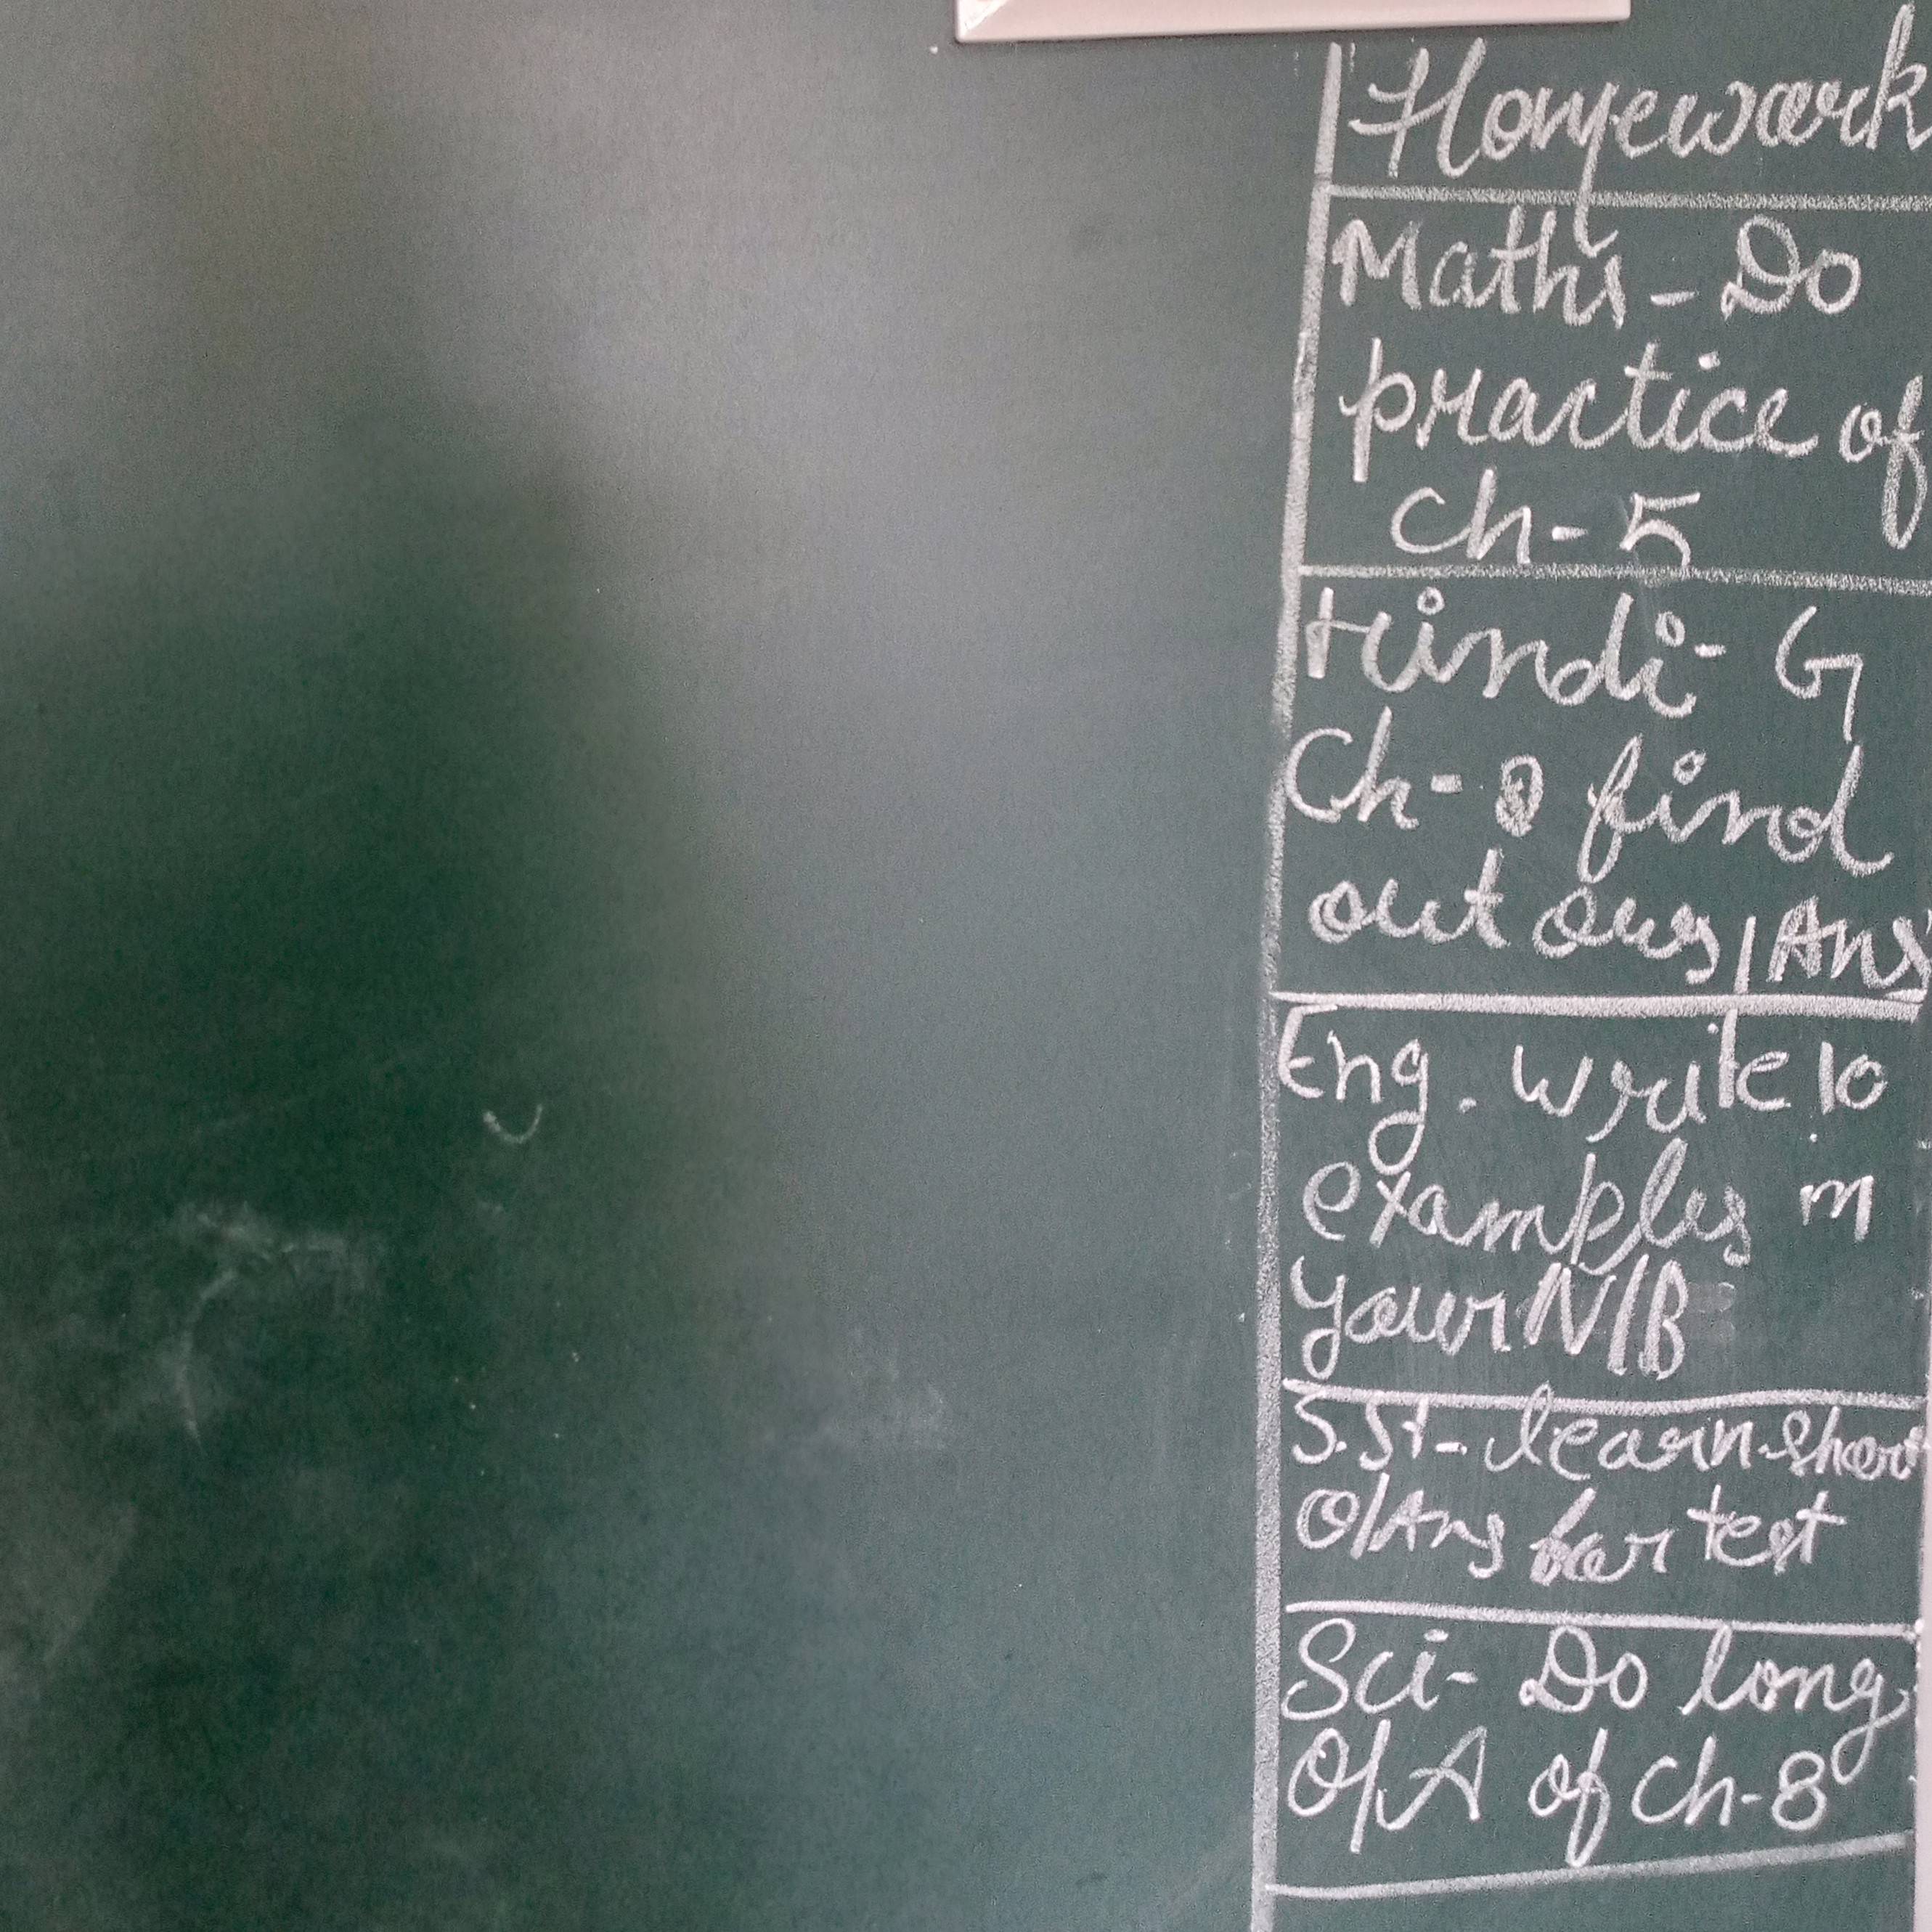 Homework
Maths - Do
practice of
Ch - 5
Hindi - G
Ch - find
out Ques/Ans
Eng. write 10
examples in
your N/B
S.St - learn short
Q/Ans for test
Sci - Do long
Q/A of Ch - 8